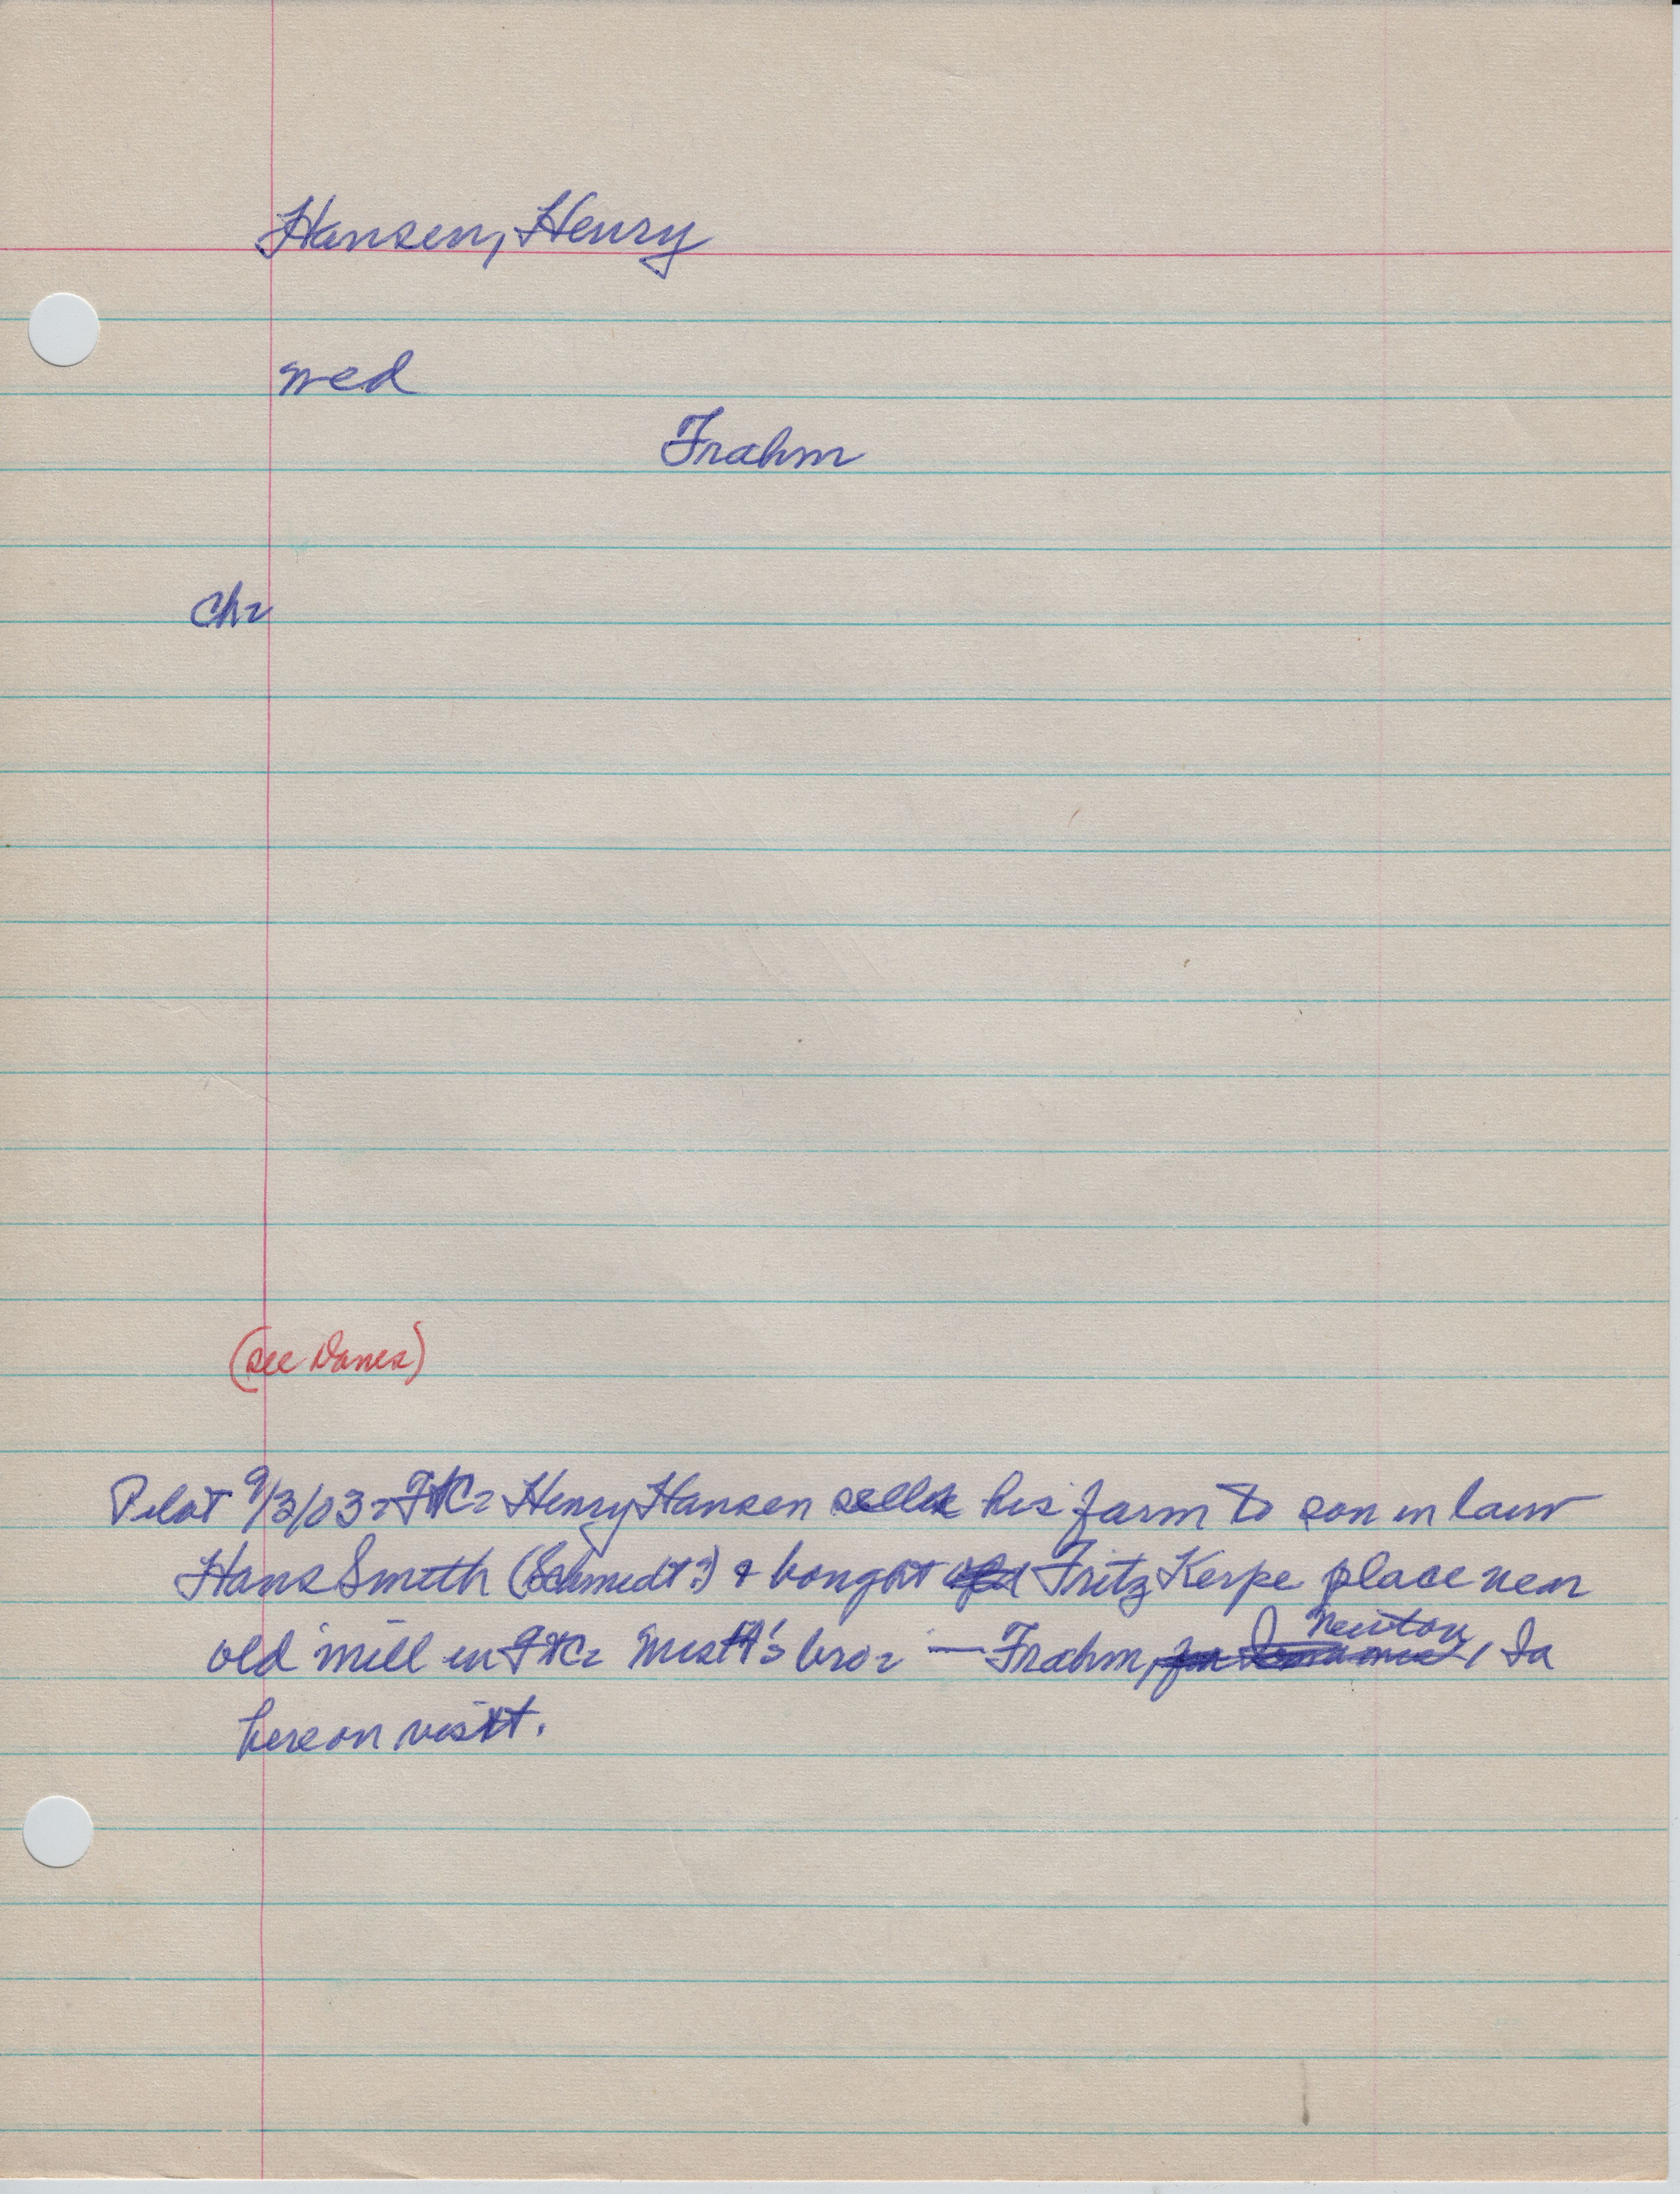 Hansen, Henry
wed
Frahm
Ch:
(see Danes)
Pilot 9/3/03: FtC: Henry Hansen sells his farm to son in law
Hans Smith (Schmidt?) & bought Fritz Kerpe place near
old mill in FtC: Mrs H's bro: — Frahm, Newton, Ia
here on visit.